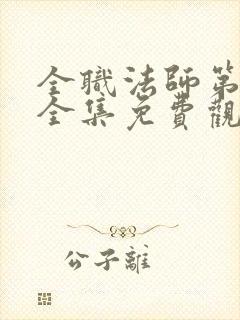 全職法師第
全集免費觀
公子離